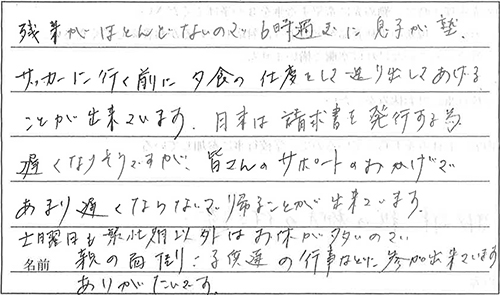 残業がほとんどないので、6時過ぎに息子が塾、
サッカーに行く前に夕食の仕度をして送り出してあげる
ことが出来ています。月末は請求書を発行する為
遅くなりそうですが、皆さんのサポートのおかげで
あまり遅くならないで帰ることが出来ています。
土曜日も繁忙期以外はお休が多いので
名前 親の面倒り、子供達の行事などに参加出来ています
ありがたいです。